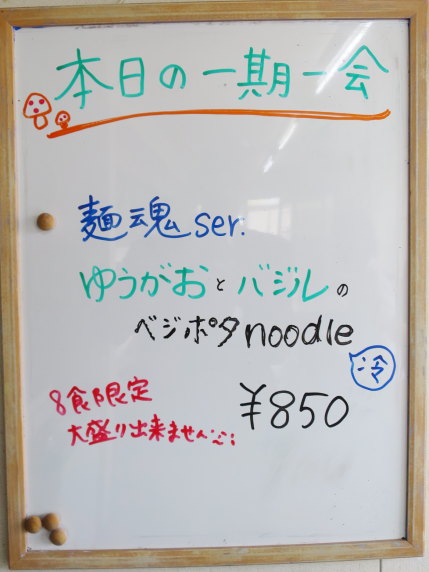 本日の一期一会
麺魂ser.
ゆうがおとバジルの
ベジポタnoodle
冷
¥850
8食限定
大盛り出来ません